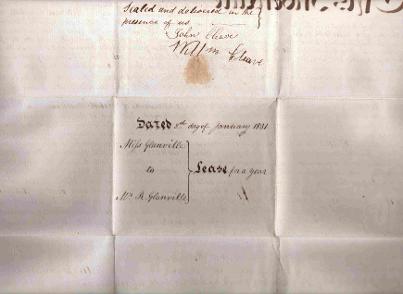 Sealed and delivered in the
presence of us
John Cleave
Willm Cleave
Dated 5th day of January 1831
Miss Glanville
to
Mr. R. Glanville
Lease for a year